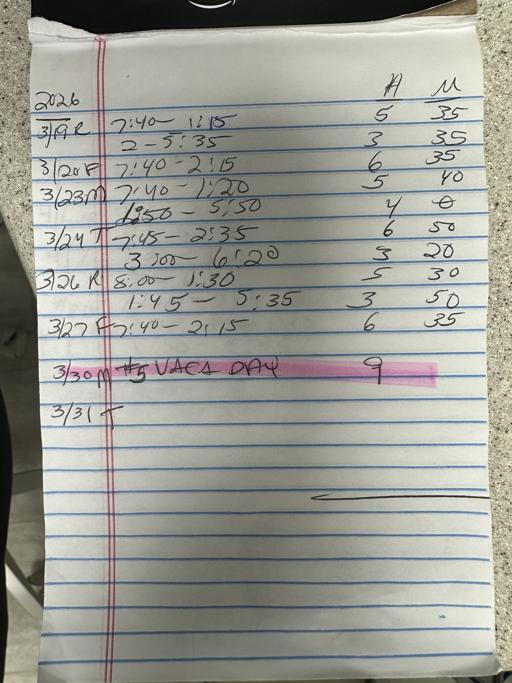 A M
2026
3/19 R 7:40 - 1:15 5 35
2 - 5:35 3 35
3/20 F 7:40 - 2:15 6 35
3/23 M 7:40 - 1:20 5 40
1:50 - 5:50 4 0
3/24 T 7:45 - 2:35 6 50
3:00 - 6:20 3 20
3/26 R 8:00 - 1:30 5 30
1:45 - 5:35 3 50
3/27 F 7:40 - 2:15 6 35
3/30 M #5 VACA DAY 9
3/31 T